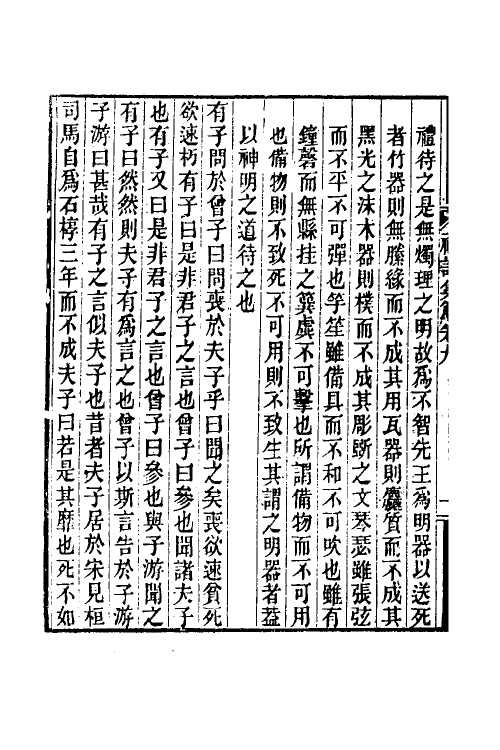 禮待之是無燭理之明故爲不智先王爲明器以送死
者竹器則無縢緣而不成其用瓦器則麤質而不成其
黑光之沬木器則樸而不成其彫斲之文琴瑟雖張弦
而不平不可彈也竽笙雖備具而不和不可吹也雖有
鐘磬而無縣挂之簨虡不可擊也所謂備物而不可用
也備物則不致死不可用則不致生其謂之明器者蓋
以神明之道待之也
有子問於曾子曰問喪於夫子乎曰聞之矣喪欲速貧死
欲速朽有子曰是非君子之言也曾子曰參也聞諸夫子
也有子又曰是非君子之言也曾子曰參也與子游聞之
有子曰然然則夫子有爲言之也曾子以斯言告於子游
子游曰甚哉有子之言似夫子也昔者夫子居於宋見桓
司馬自爲石椁三年而不成夫子曰若是其靡也死不如